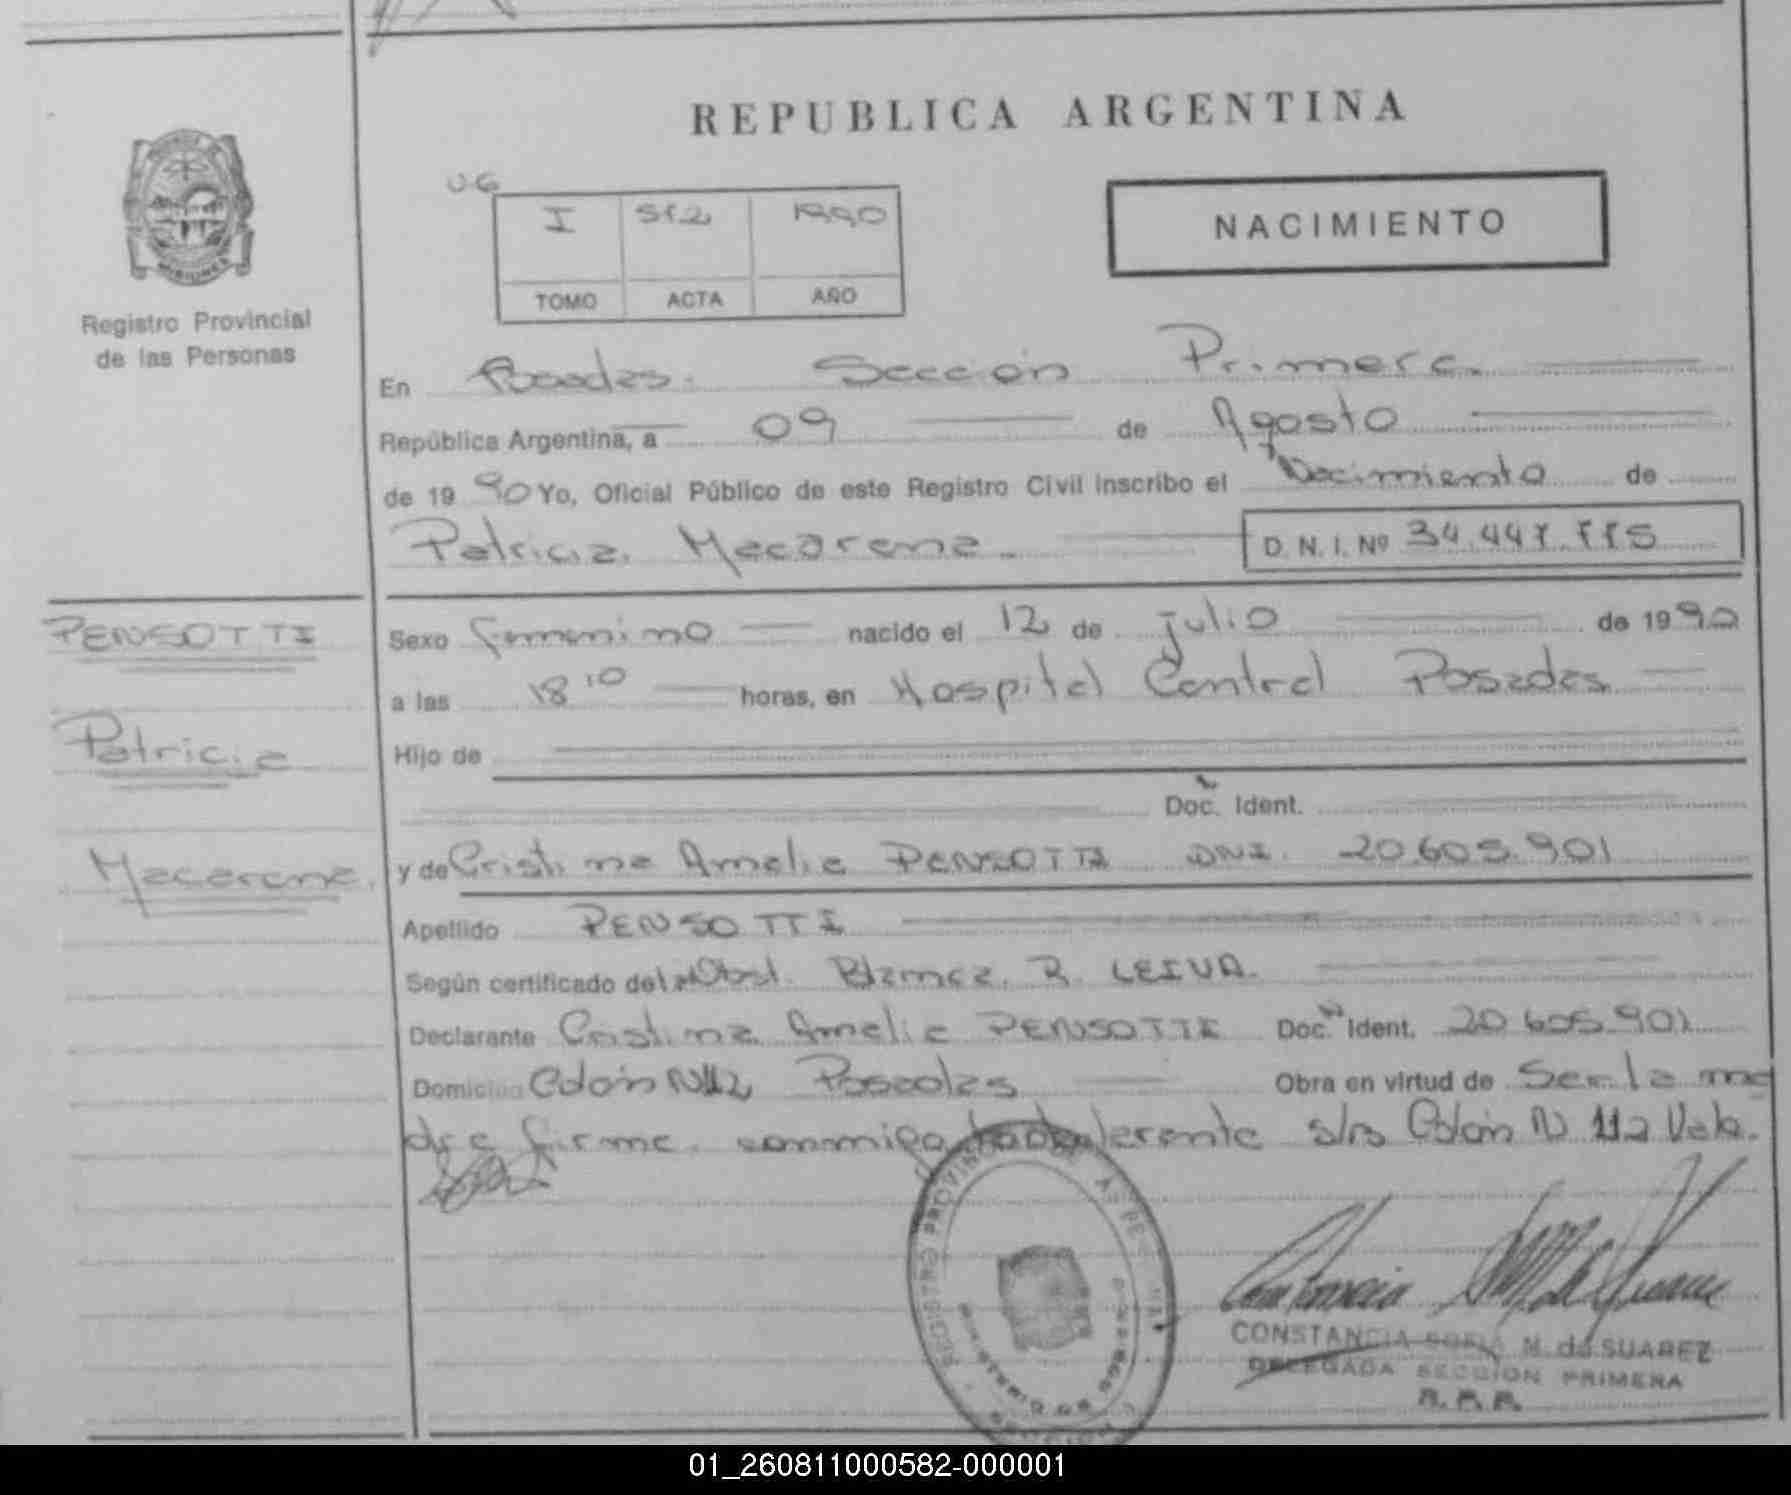 REPUBLICA ARGENTINA
NACIMIENTO
I 1990
TOMO ACTA AÑO
MISIONES
Registro Provincial
de las Personas
En Posadas. Sección Primera.
República Argentina, a 09 de Agosto
de 1990 Yo, Oficial Público de este Registro Civil inscribo el Nacimiento de
Patricia Macarena D. N. I. Nº 34.447.
PENSOTTI
Patricia
Macarena.
Sexo femenino nacido el 12 de Julio de 1990
a las 18 10 horas, en Hospital Central Posadas
Hijo de
Doc. Ident.
y de Cristina Amelia PENSOTTI DNI. 20.605.901
Apellido PENSOTTI
Según certificado del Obst. Blanca R. LEIVA.
Declarante Cristina Amelia PENSOTTI Doc. Ident. 20.605.901
Domicilio Colón Nº 112 Posadas Obra en virtud de Ser la ma
dre firma conmigo Colón N 112 Vale.
REGISTRO PROVINCIAL DE LAS PERSONAS
CONSTANCIA SOFIA N. de SUAREZ
DELEGADA SECCION PRIMERA
R. P. P.
01_260811000582-000001